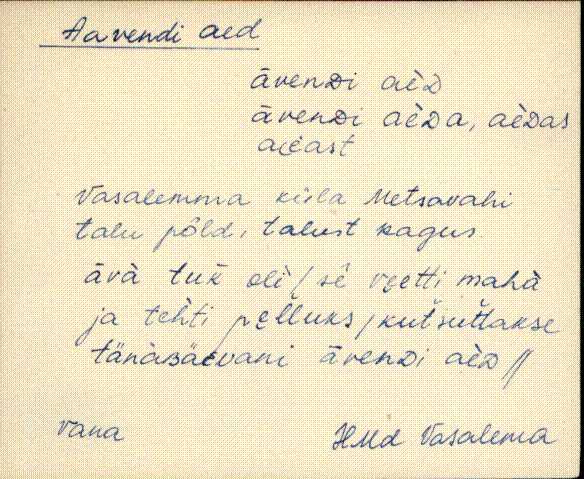 Aavendi aed
āvendi aèD
āvendi aèDa, aèDas
aéast
Vasalemma küla Metsavahi
talu põld, talust kagus
āvà tuk̆ olì / sê vęetti mahà
ja tehti pęlluks / kut̆sut̆takse
tänàBäevani āvenDi aèD //
vana
HMd Vasalema